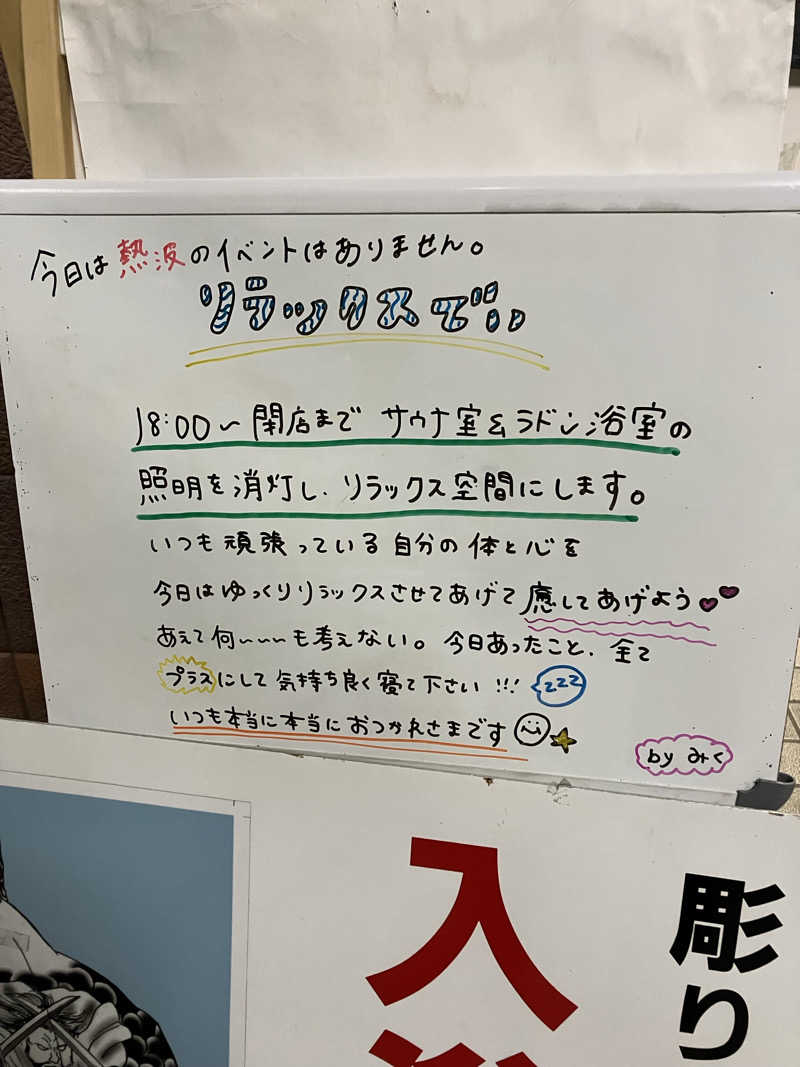 今日は熱波のイベントはありません。
リラックスDay
18:00～閉店まで サウナ室&ラドン浴室の
照明を消灯し、リラックス空間にします。
いつも頑張っている自分の体と心を
今日はゆっくりリラックスさせてあげて癒してあげよう
あえて何ぃぃぃも考えない。今日あったこと、全て
プラスにして気持ち良く寝て下さい!!! zzz
いつも本当に本当におつかれさまです
by みく
入
彫り